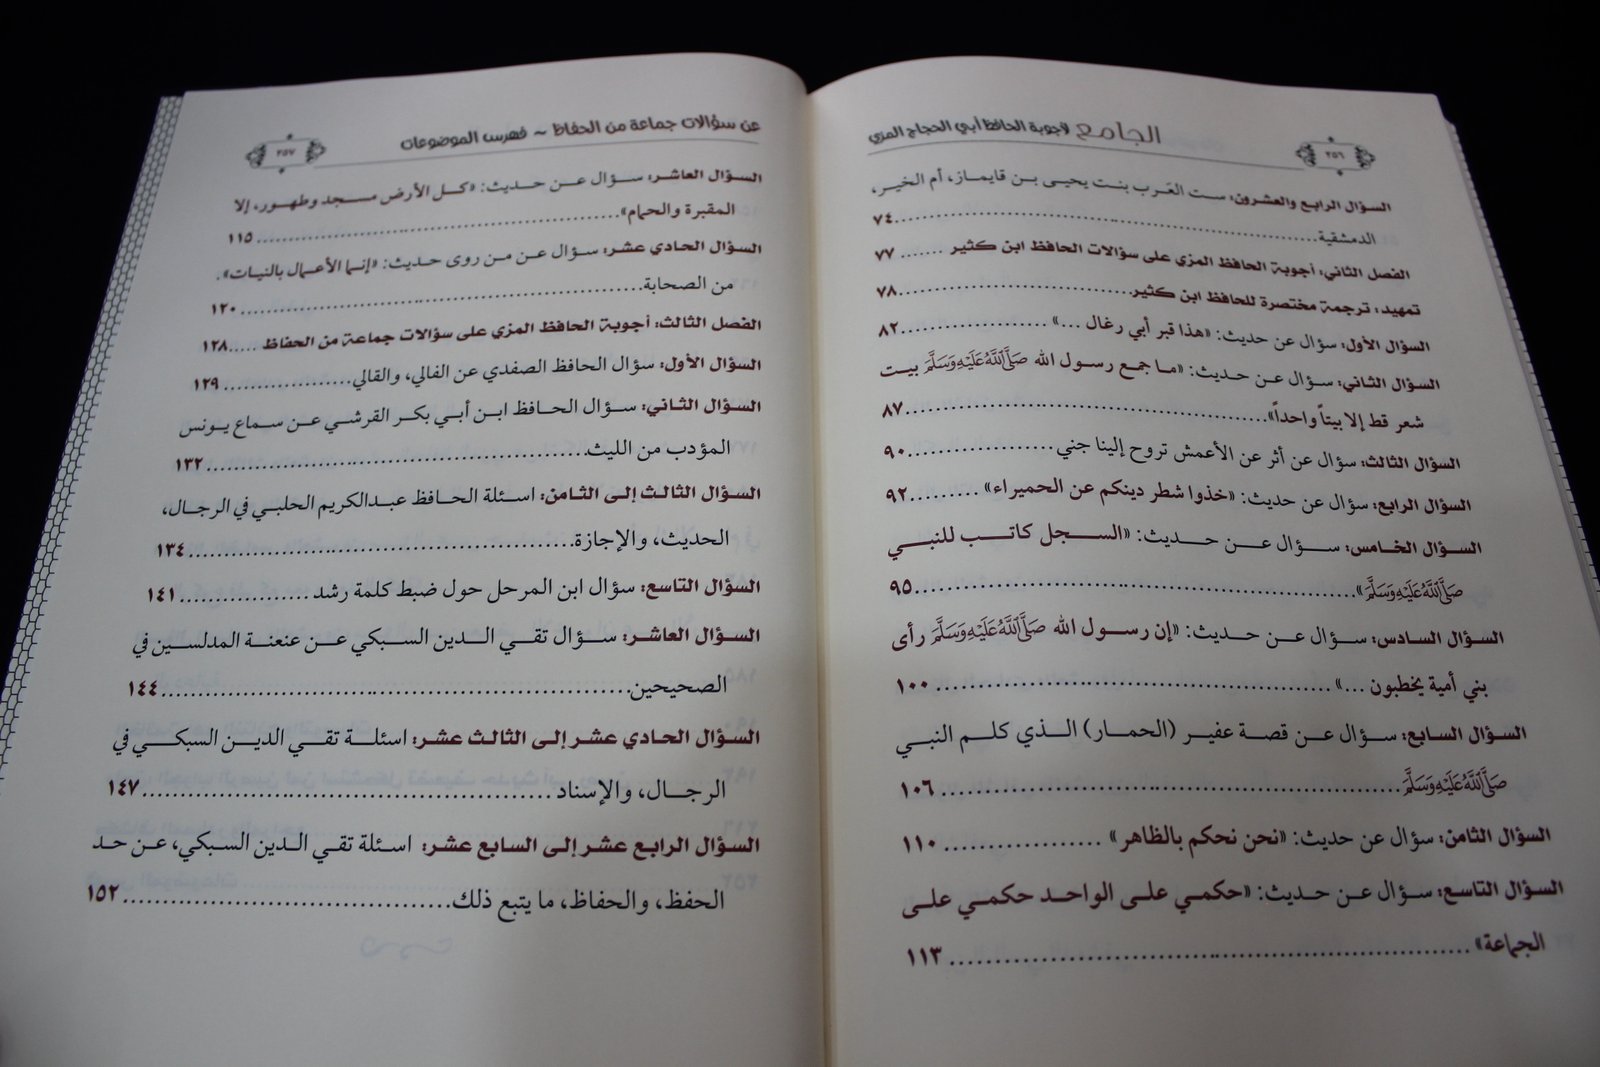 الجامع لأجوبة الحافظ أبي الحجاج المزي
٢٥٦
السؤال الرابع والعشرون: ست العَرب بنت يحيى بن قايماز، أم الخير،
الدمشقية ........ ٧٤
الفصل الثاني: أجوبة الحافظ المزي على سؤالات الحافظ ابن كثير ....... ٧٧
تمهيد: ترجمة مختصرة للحافظ ابن كثير ........ ٧٨
السؤال الأول: سؤال عن حديث: «هذا قبر أبي رغال ...» ........ ٨٢
السؤال الثاني: سؤال عن حديث: «ما جمع رسول الله صَلَّى اللَّهُ عَلَيْهِ وَسَلَّمَ بيت
شعر قط إلا بيتاً واحداً» ........ ٨٧
السؤال الثالث: سؤال عن أثر عن الأعمش تروح إلينا جني ........ ٩٠
السؤال الرابع: سؤال عن حديث: «خذوا شطر دينكم عن الحميراء» ........ ٩٢
السؤال الخامس: سؤال عن حديث: «السجل كاتب للنبي
صَلَّى اللَّهُ عَلَيْهِ وَسَلَّمَ» ........ ٩٥
السؤال السادس: سؤال عن حديث: «إن رسول الله صَلَّى اللَّهُ عَلَيْهِ وَسَلَّمَ رأى
بني أمية يخطبون ...» ........ ١٠٠
السؤال السابع: سؤال عن قصة عفير (الحمار) الذي كلم النبي
صَلَّى اللَّهُ عَلَيْهِ وَسَلَّمَ ........ ١٠٦
السؤال الثامن: سؤال عن حديث: «نحن نحكم بالظاهر» ........ ١١٠
السؤال التاسع: سؤال عن حديث: «حكمي على الواحد حكمي على
الجماعة» ........ ١١٣
عن سؤالات جماعة من الحفاظ ~ فهرس الموضوعات
٢٥٧
السؤال العاشر: سؤال عن حديث: «كل الأرض مسجد وطهور، إلا
المقبرة والحمام» ........ ١١٥
السؤال الحادي عشر: سؤال عن من روى حديث: «إنما الأعمال بالنيات».
من الصحابة ........ ١٢٠
الفصل الثالث: أجوبة الحافظ المزي على سؤالات جماعة من الحفاظ ..... ١٢٨
السؤال الأول: سؤال الحافظ الصفدي عن الفالي، والقالي ........ ١٢٩
السؤال الثاني: سؤال الحافظ ابن أبي بكر القرشي عن سماع يونس
المؤدب من الليث ........ ١٣٢
السؤال الثالث إلى الثامن: اسئلة الحافظ عبدالكريم الحلبي في الرجال،
الحديث، والإجازة ........ ١٣٤
السؤال التاسع: سؤال ابن المرحل حول ضبط كلمة رشد ........ ١٤١
السؤال العاشر: سؤال تقي الدين السبكي عن عنعنة المدلسين في
الصحيحين ........ ١٤٤
السؤال الحادي عشر إلى الثالث عشر: اسئلة تقي الدين السبكي في
الرجال، والإسناد ........ ١٤٧
السؤال الرابع عشر إلى السابع عشر: اسئلة تقي الدين السبكي، عن حد
الحفظ، والحفاظ، ما يتبع ذلك ........ ١٥٢